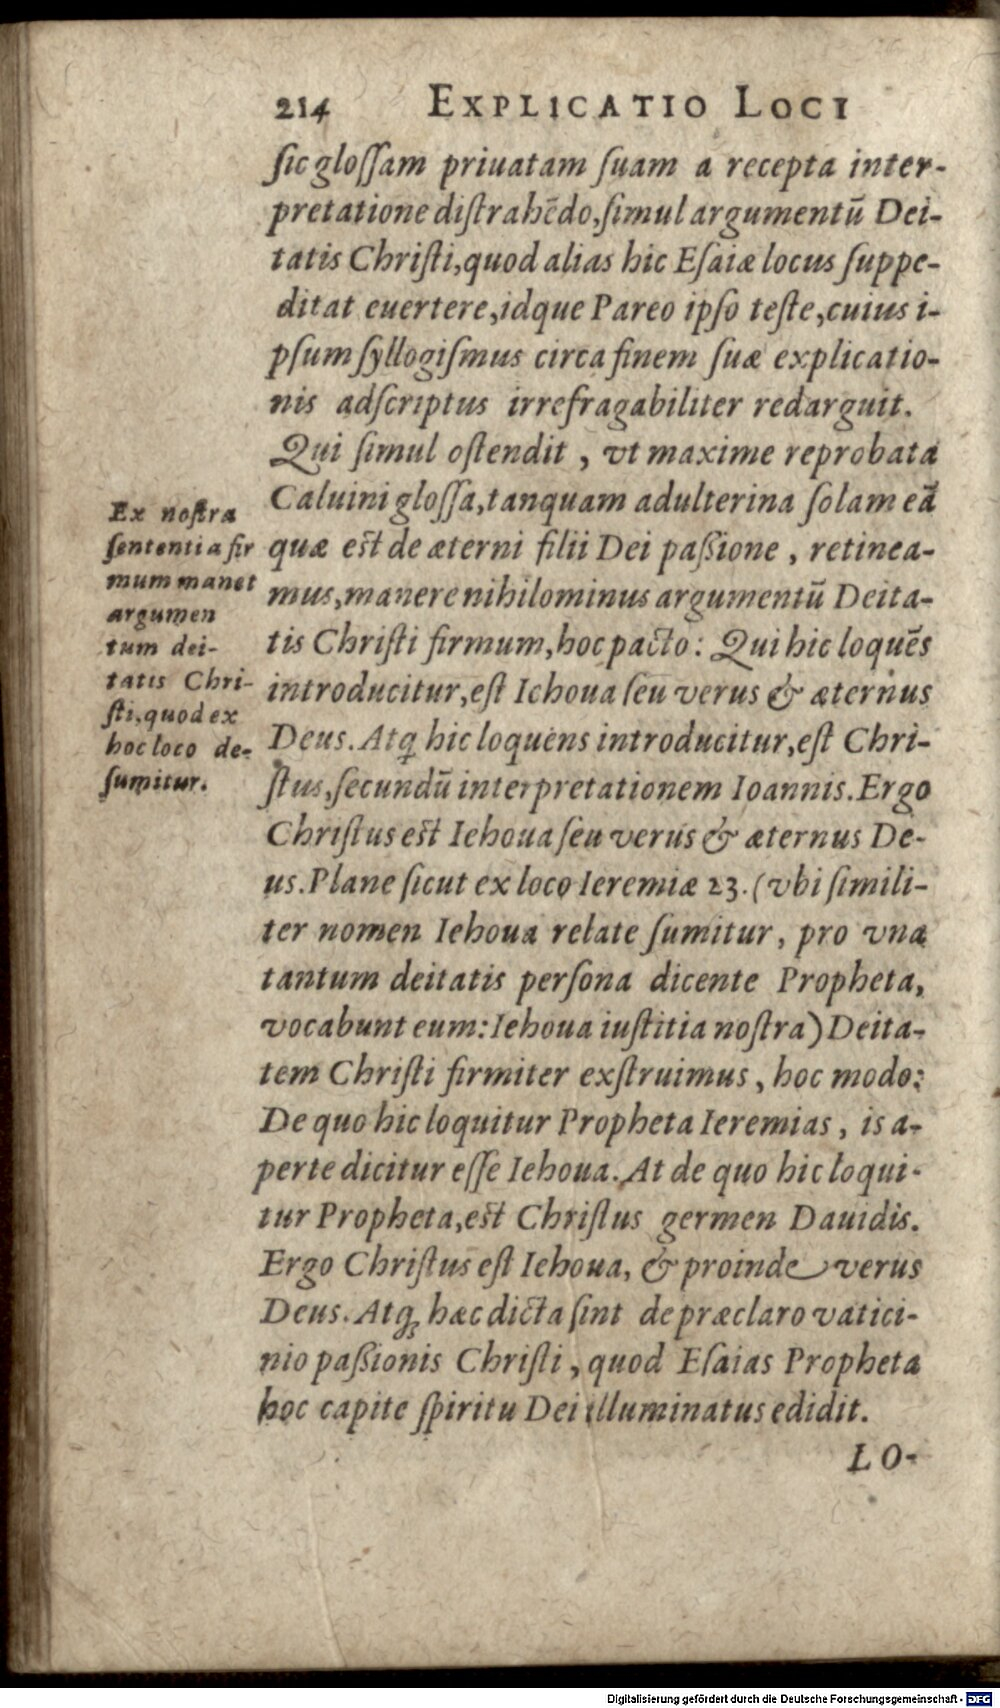 214 EXPLICATIO LOCI
ſic gloſſam priuatam ſuam a recepta inter-
pretatione diſtrahēdo, ſimul argumentū Dei-
tatis Chriſti, quod alias hic Eſaiæ locus ſuppe-
ditat euertere, idque Pareo ipſo teſte, cuius i-
pſum ſyllogiſmus circa finem ſuæ explicatio-
nis adſcriptus irrefragabiliter redarguit.
Qui ſimul oſtendit, vt maxime reprobata
Caluini gloſſa, tanquam adulterina ſolam eā
quæ eſt de æterni filii Dei paſsione, retinea-
mus, manere nihilominus argumentū Deita-
tis Chriſti firmum, hoc pacto: Qui hic loquēs
introducitur, eſt Iehoua ſeu verus & æternus
Deus. Atq; hic loquens introducitur, eſt Chri-
ſtus, ſecundū interpretationem Ioannis. Ergo
Chriſtus eſt Iehoua ſeu verus & æternus De-
us. Plane ſicut ex loco Ieremiæ 23. (vbi ſimili-
ter nomen Iehoua relate ſumitur, pro vna
tantum deitatis perſona dicente Propheta,
vocabunt eum: Iehoua iuſtitia noſtra) Deita-
tem Chriſti firmiter exſtruimus, hoc modo:
De quo hic loquitur Propheta Ieremias, is a-
perte dicitur eſſe Iehoua. At de quo hic loqui-
tur Propheta, eſt Chriſtus germen Dauidis.
Ergo Chriſtus eſt Iehoua, & proinde verus
Deus. Atq; hæc dicta ſint de præclaro vatici-
nio paſsionis Chriſti, quod Eſaias Propheta
hoc capite ſpiritu Dei illuminatus edidit.
LO-
Ex noſtra
ſententia fir
mum manet
argumen
tum dei-
tatis Chri-
ſti, quod ex
hoc loco de-
ſumitur.
Digitalisierung gefördert durch die Deutsche Forschungsgemeinschaft - DFG